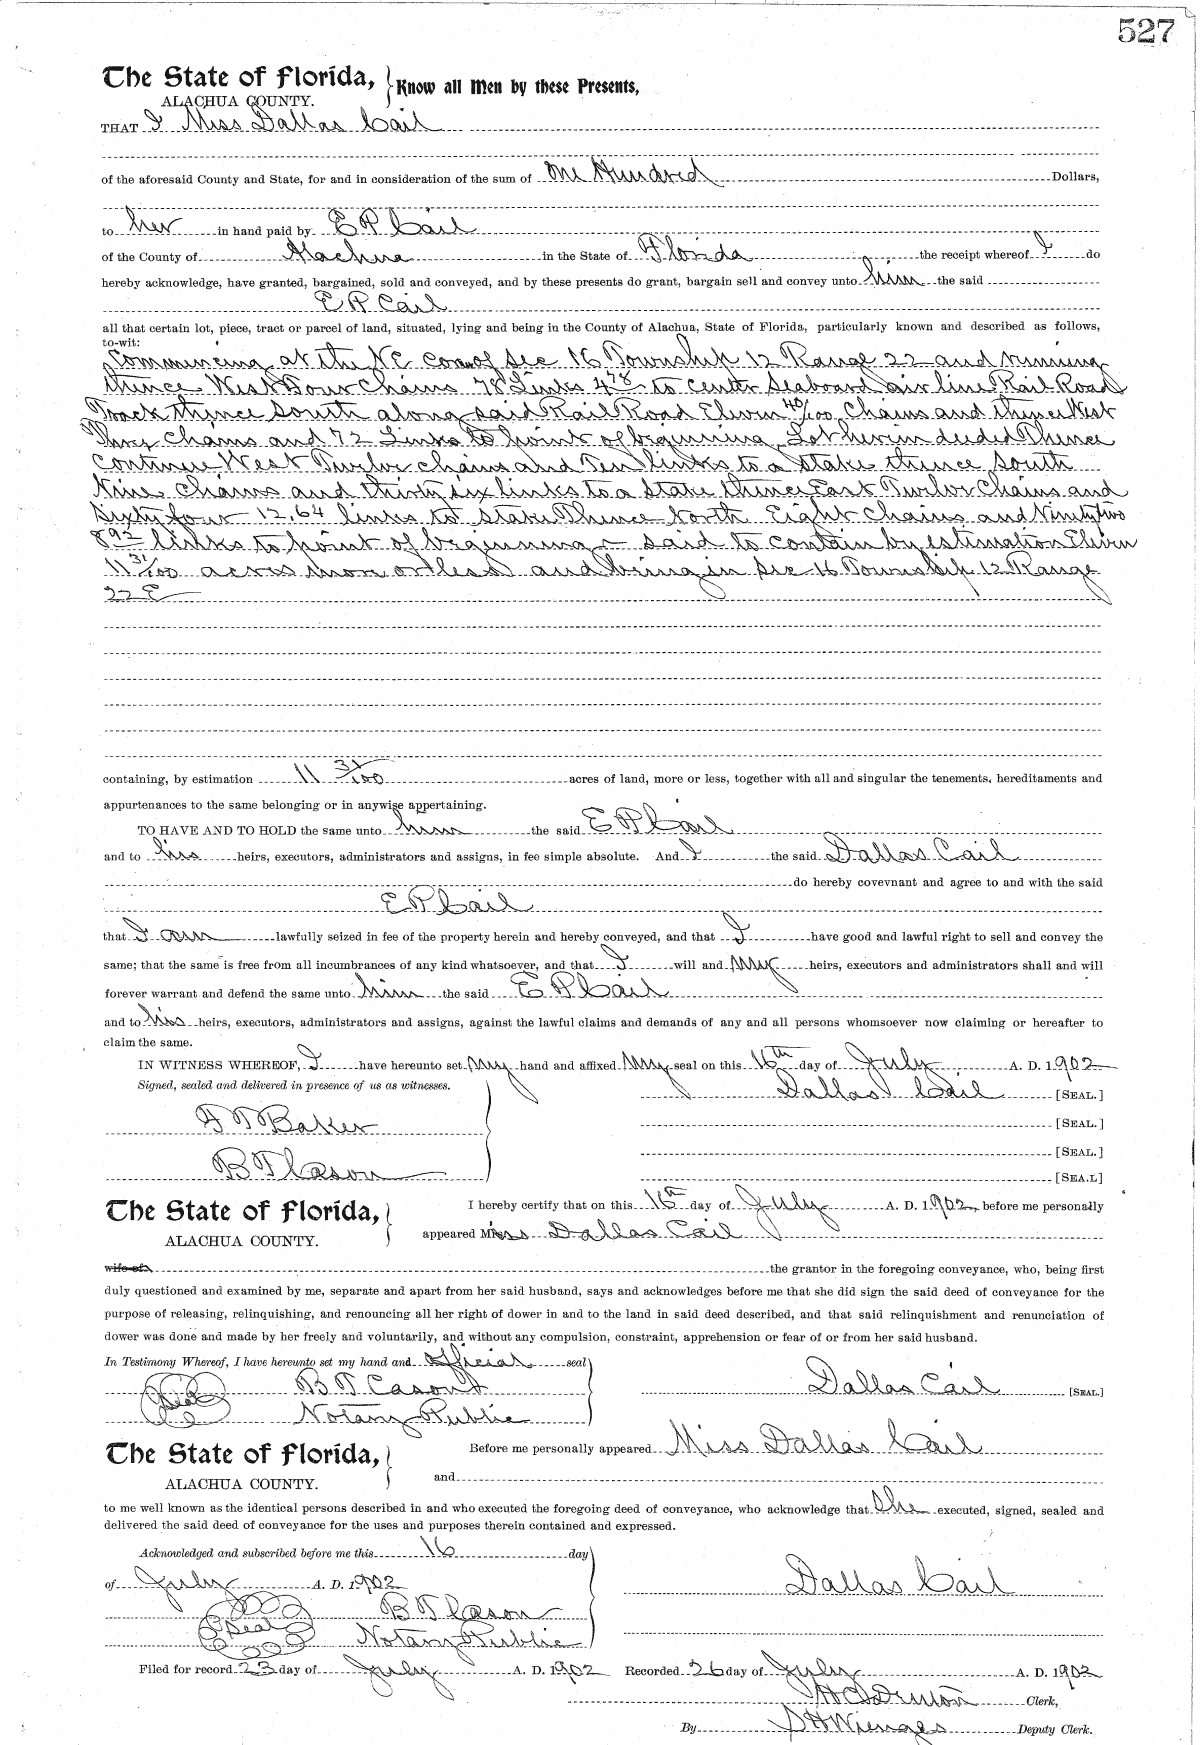 527
The State of Florida, Know all Men by these Presents,
ALACHUA COUNTY.
THAT I Miss Dallas Cail
of the aforesaid County and State, for and in consideration of the sum of One Hundred Dollars,
to her in hand paid by E P Cail
of the County of Alachua in the State of Florida the receipt whereof I do
hereby acknowledge, have granted, bargained, sold and conveyed, and by these presents do grant, bargain sell and convey unto him the said
E P Cail
all that certain lot, piece, tract or parcel of land, situated, lying and being in the County of Alachua, State of Florida, particularly known and described as follows,
to-wit:
Commencing at the NE corn of Sec 16 Township 12 Range 22 and running
thence West Four Chains 78 Links 4 78 to center Seaboard air line Rail Road
Track thence South along said Rail Road Eleven 40/100 Chains and thence West
Three Chains and 72 Links to point of beginning Lot herein deeded Thence
Continue West Twelve chains and Ten links to a stake thence South
Nine Chains and thirty six links to a stake thence East Twelve Chains and
Sixty four 12.64 links to stake Thence North Eight Chains and Ninety two
8 92 links to point of beginning - said to contain by estimation Eleven
11 31/100 acres more or less and being in Sec 16 Township 12 Range
22 E
containing, by estimation 11 31/100 acres of land, more or less, together with all and singular the tenements, hereditaments and
appurtenances to the same belonging or in anywise appertaining.
TO HAVE AND TO HOLD the same unto him the said E P Cail
and to his heirs, executors, administrators and assigns, in fee simple absolute. And I the said Dallas Cail
do hereby covevnant and agree to and with the said
E P Cail
that I am lawfully seized in fee of the property herein and hereby conveyed, and that I have good and lawful right to sell and convey the
same; that the same is free from all incumbrances of any kind whatsoever, and that I will and my heirs, executors and administrators shall and will
forever warrant and defend the same unto him the said E P Cail
and to his heirs, executors, administrators and assigns, against the lawful claims and demands of any and all persons whomsoever now claiming or hereafter to
claim the same.
IN WITNESS WHEREOF, I have hereunto set my hand and affixed my seal on this 16th day of July A. D. 1902
Signed, sealed and delivered in presence of us as witnesses. Dallas Cail [SEAL.]
F T Baker [SEAL.]
[SEAL.]
B T Cason [SEA.L]
The State of Florida, I hereby certify that on this 16th day of July A. D. 1902, before me personally
ALACHUA COUNTY. appeared Miss Dallas Cail
wife of the grantor in the foregoing conveyance, who, being first
duly questioned and examined by me, separate and apart from her said husband, says and acknowledges before me that she did sign the said deed of conveyance for the
purpose of releasing, relinquishing, and renouncing all her right of dower in and to the land in said deed described, and that said relinquishment and renunciation of
dower was done and made by her freely and voluntarily, and without any compulsion, constraint, apprehension or fear of or from her said husband.
In Testimony Whereof, I have hereunto set my hand and official seal
Seal B T Cason Dallas Cail [SEAL.]
Notary Public
The State of Florida, Before me personally appeared Miss Dallas Cail
ALACHUA COUNTY. and
to me well known as the identical persons described in and who executed the foregoing deed of conveyance, who acknowledge that she executed, signed, sealed and
delivered the said deed of conveyance for the uses and purposes therein contained and expressed.
Acknowledged and subscribed before me this 16 day
of July A. D. 1902 Dallas Cail
Seal B T Cason
Notary Public
Filed for record 23 day of July A. D. 1902 Recorded 26 day of July A. D. 1902
H C Denton Clerk,
By S H Wienges Deputy Clerk.